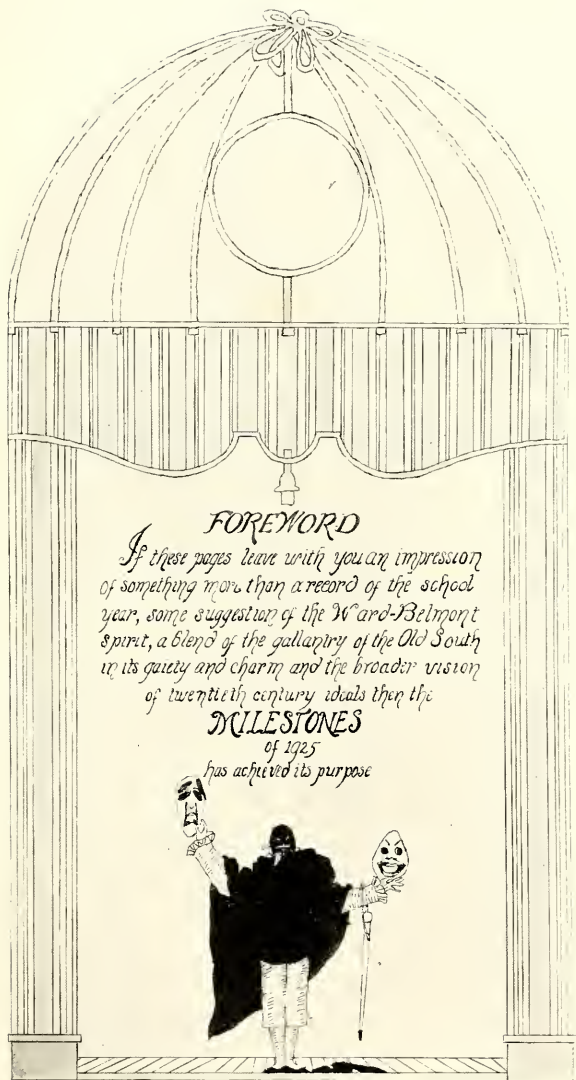 FOREWORD
If these pages leave with you an impression
of something more than a record of the school
year, some suggestion of the Ward-Belmont
spirit, a blend of the gallantry of the Old South
in its gaiety and charm and the broader vision
of twentieth century ideals then the
MILESTONES
of 1925
has achieved its purpose